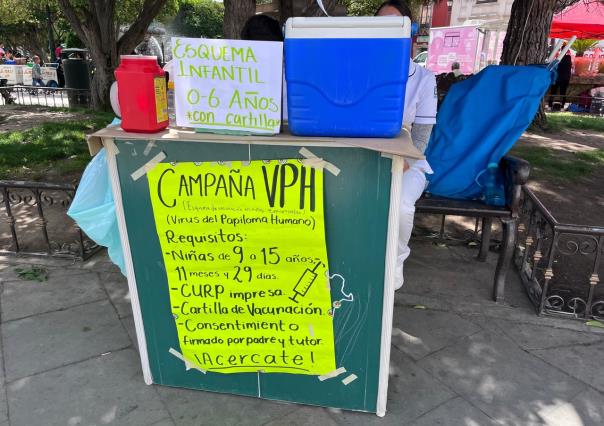 ESQUEMA
INFANTIL
0-6 AÑOS
*con cartilla*
CAMPAÑA VPH
(Virus del Papiloma Humano)
Requisitos:
-Niñas de 9 a 15 años,
11 meses y 29 días.
-CURP impresa.
-Cartilla de Vacunación.
-Consentimiento
firmado por padre y tutor.
¡Acercate!